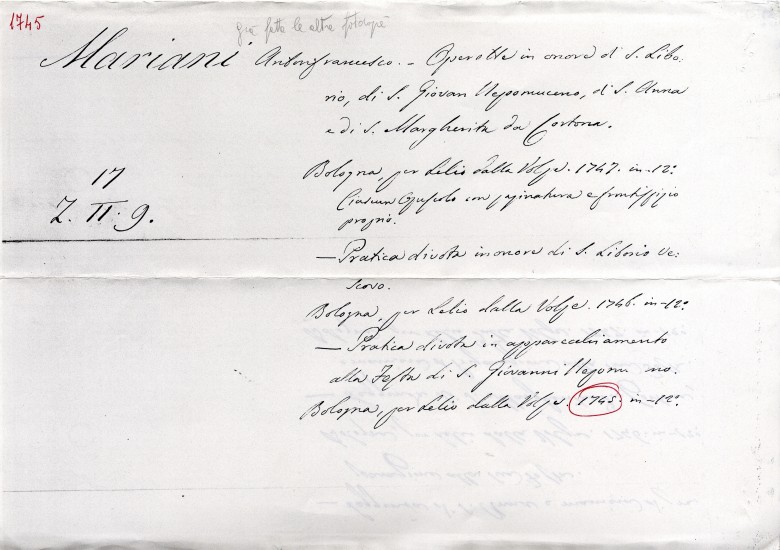 1745
già fatte le altre fotocopie
Mariani Antonfrancesco. - Operette in onore di S. Libo:
rio, di S. Giovan Nepomuceno, di S. Anna
e di S. Margherita da Cortona.
17
Z. II. 9.
Bologna, per Lelio dalla Volpe. 1747. in-12º
Ciascun Opuscolo con paginatura e frontispizio
proprio.
— Pratica divota in onore di S. Liborio Ve:
scovo.
Bologna, per Lelio dalla Volpe. 1746. in-12º
— Pratica divota in apparecchiamento
alla Festa di S. Giovanni Nepomu no.
Bologna, per Lelio dalla Volpe. 1745. in-12º